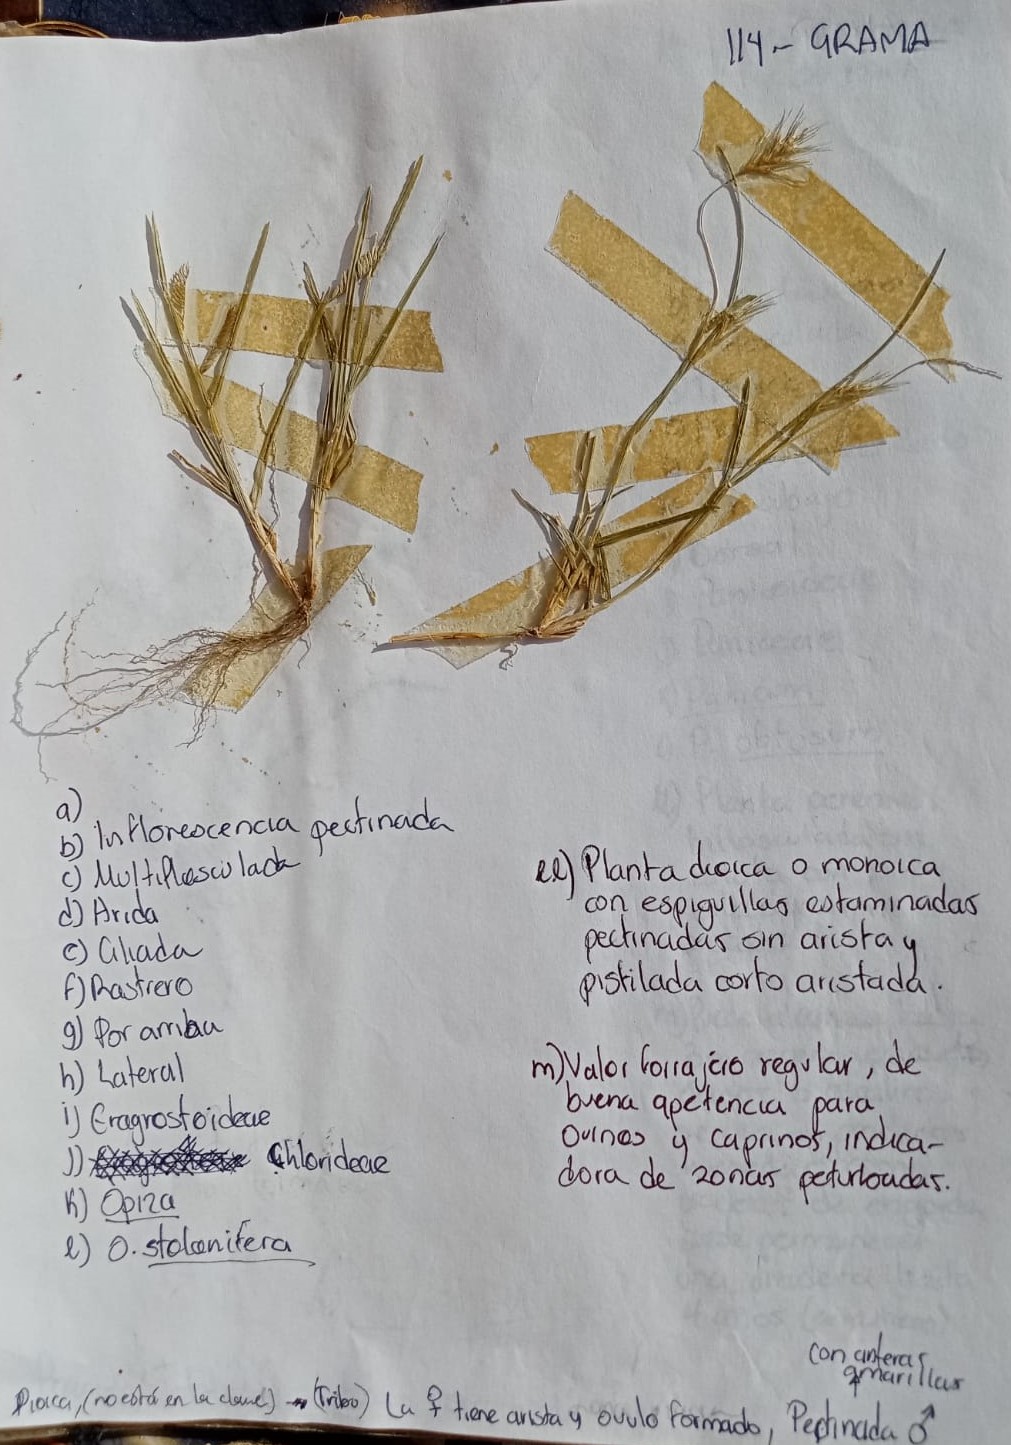 114.- GRAMA
a)
b) Inflorescencia pectinada
c) Multiflosculada
d) Arida
e) Ciliada
f) Rastrero
g) Por ambu
h) Lateral
i) Eragrostoideae
J) Chlorideae
k) Opiza
l) O. stolonifera
ll) Planta dioica o monoica
con espiguillas estaminadas
pectinadas sin arista y
pistilada corto aristada.
m) Valor forrajero regular, de
buena apetencia para
ovinos y caprinos, indica-
dora de zonas peturbadas.
con anteras
amarillas
Dioica, (no está en la clave) → (Tribu) La ♀ tiene arista y ovulo formado, Pectinada ♂